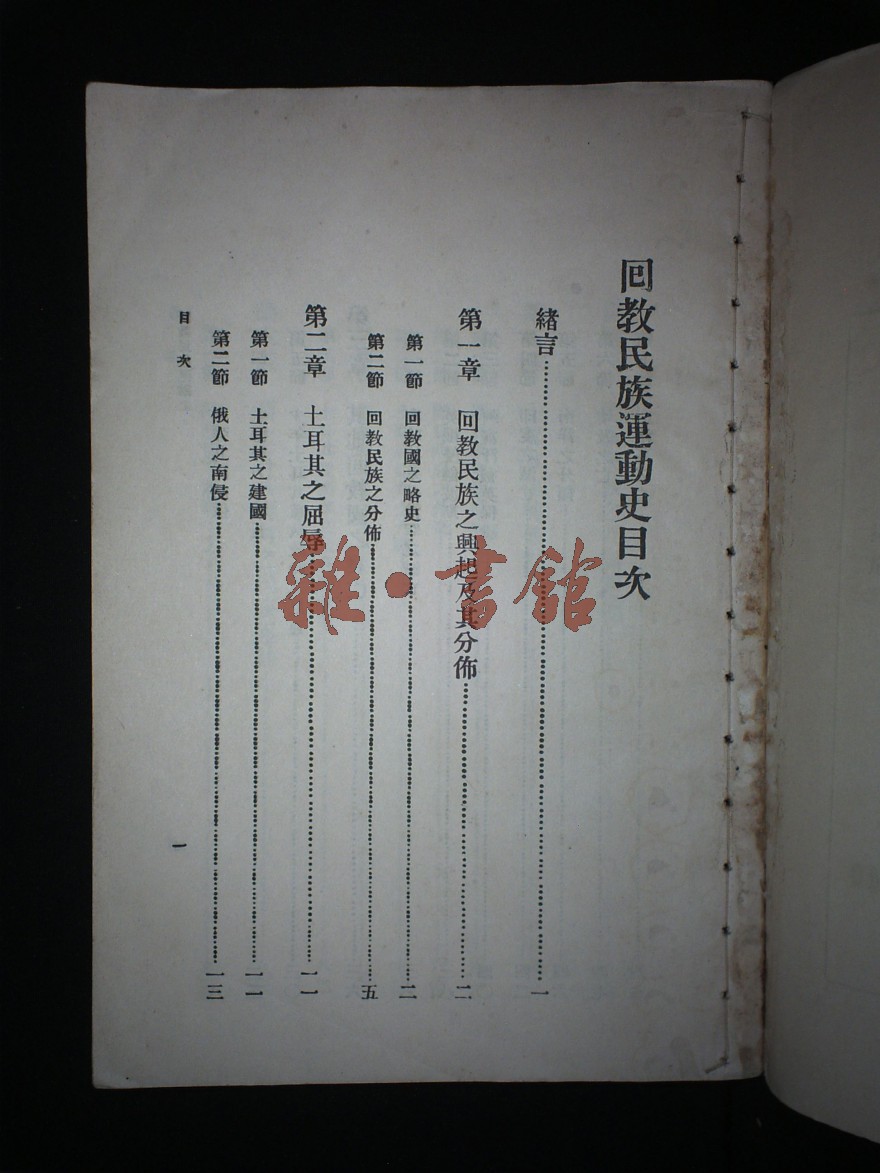 回教民族運動史目次
緒言……………………一
第一章 回教民族之興起及其分佈……………………二
第一節 回教國之略史……………………二
第二節 回教民族之分佈……………………五
第二章 土耳其之屈辱……………………一一
第一節 土耳其之建國……………………一一
第二節 俄人之南侵……………………一三
目次 一
雜·書館